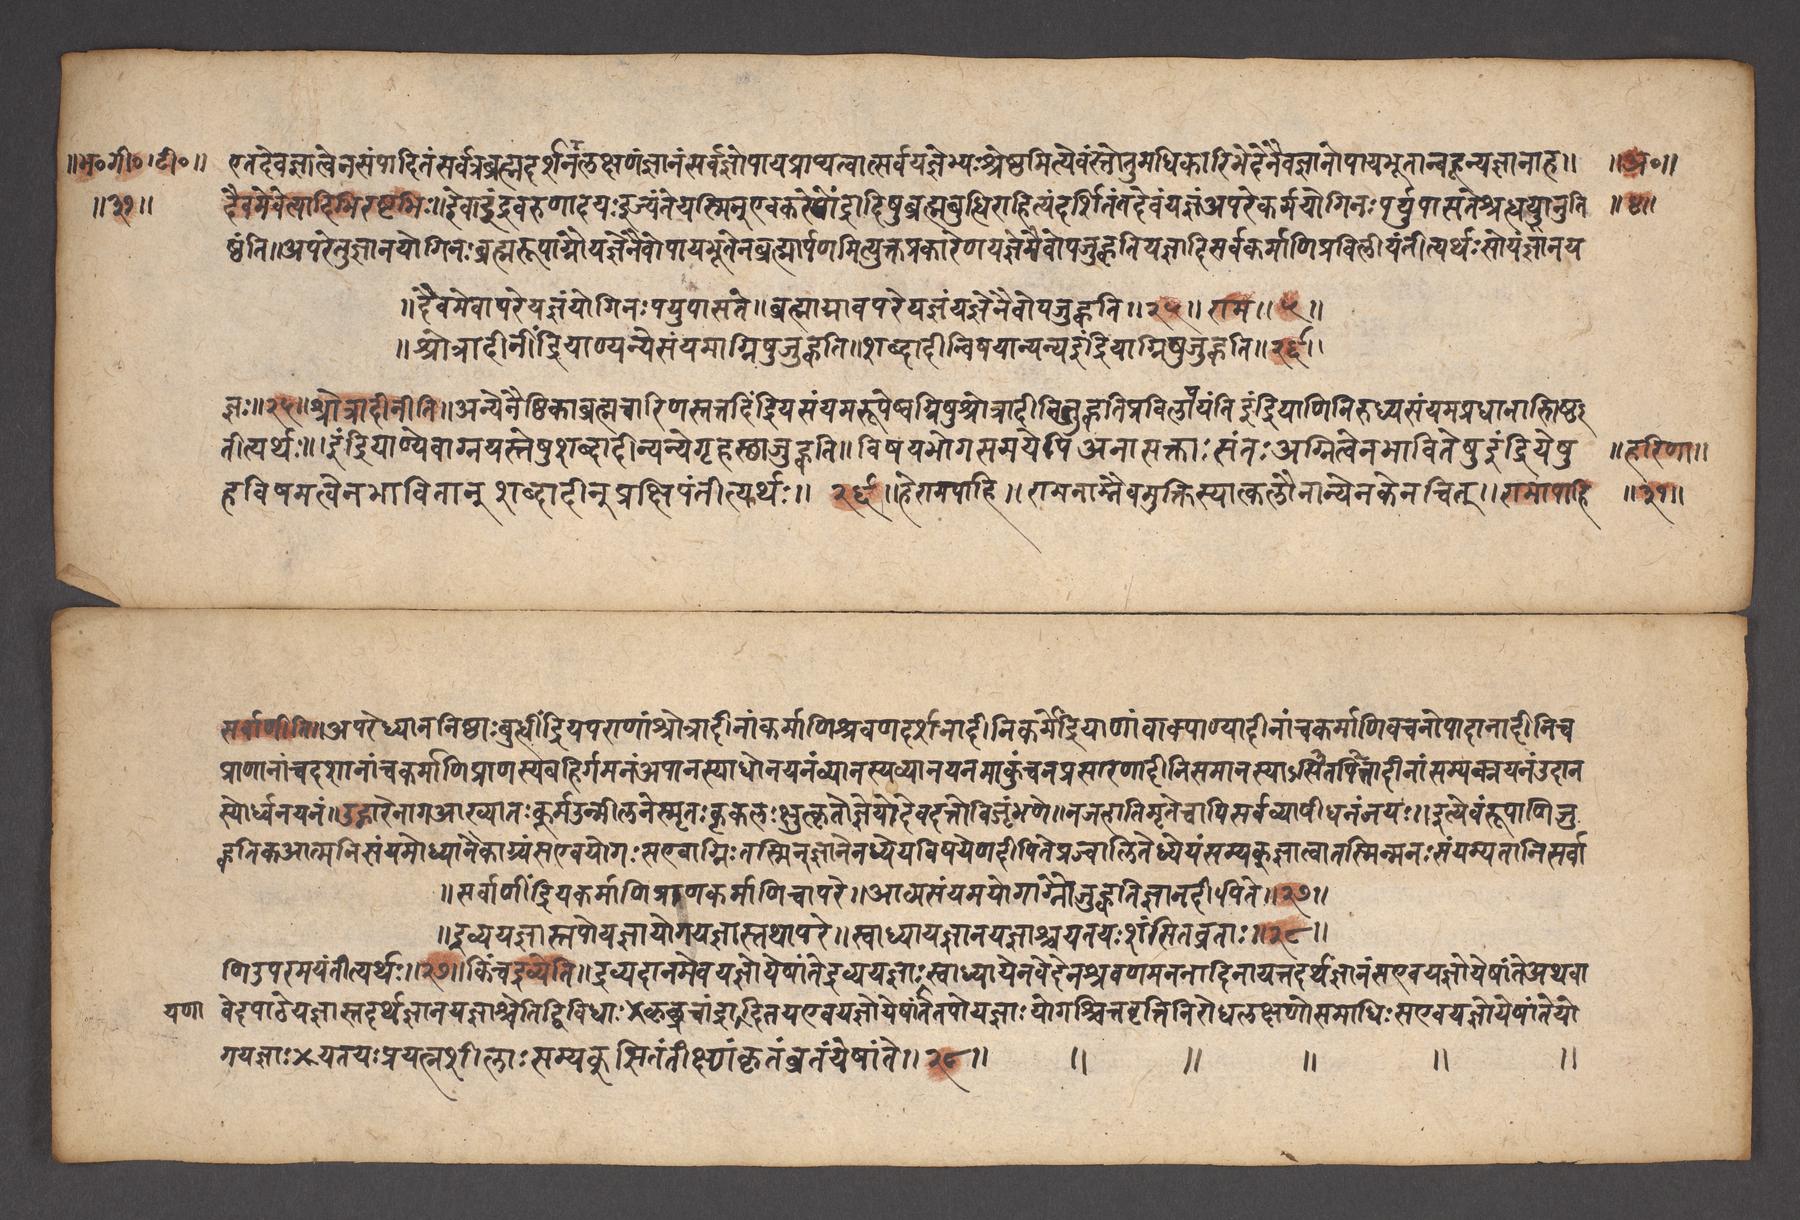 ॥भ॰गी॰।टी॰॥ एतदेवज्ञात्वेनसंपादितंसर्वत्रब्रह्मदर्शनलक्षणंज्ञानंसर्वज्ञोपायप्राप्यत्वात्सर्वयज्ञेभ्यःश्रेष्ठमित्येवंस्तोतुमधिकारिभेदेनैवज्ञानोपायभूतान्बहून्यज्ञानाह॥ ॥अ॰॥
॥३१॥ दैवमेवेत्यादिभिरष्टभिः॥देवाइंद्रवरुणादयःइज्यंतेयस्मिन्एवकारेणेंद्रादिषुब्रह्मबुद्धिराहित्यंदर्शितंतंदेवंयज्ञंअपरेकर्मयोगिनःपर्युपासतेश्रद्धयानुति ॥४॥
ष्ठंति॥अपरेतुज्ञानयोगिनःब्रह्मरूपाग्नौयज्ञेनैवोपायभूतेनब्रह्मार्पणमित्युक्तप्रकारेणयज्ञमेवोपजुह्वतियज्ञादिसर्वकर्माणिप्रविलीयंतीत्यर्थःसोयंज्ञानय
॥दैवमेवापरेयज्ञंयोगिनःपयुपासते॥ब्रह्माग्नावपरेयज्ञंयज्ञेनैवोपजुह्वति॥२५॥राम॥५॥
॥श्रोत्रादीनींद्रियाण्यन्येसंयमाग्निषुजुह्वति॥शब्दादीन्विषयान्यन्यइंद्रियाग्निषुजुह्वति॥२६॥
ज्ञः॥२५॥श्रोत्रादीनीति॥अन्येनैष्ठिकाब्रह्मचारिणस्तत्तदिंद्रियसंयमरूपेष्वग्निषुश्रोत्रादीनिजुह्वतिप्रविलापयंति इंद्रियाणिनिरुध्यसंयमप्रधानास्तिष्ठं
तीत्यर्थः॥इंद्रियाण्येवाग्नयस्तेषुशब्दादीन्यन्येगृहस्थाजुह्वति॥विषयभोगसमयेपि अनासक्ताःसंतःअग्नित्वेनभावितेषुइंद्रियेषु ॥हरिणा॥
हविषमत्वेनभावितान् शब्दादीन् प्रक्षिपंतीत्यर्थः॥ २६॥हेरामपाहि॥रामनाम्नैवमुक्तिस्यात्कलौनान्येनकेनचित्॥रामापाहि ॥३१॥
सर्वाणीति॥अपरेध्याननिष्ठाःबुद्धींद्रियपराणांश्रोत्रादीनांकर्माणिश्रवणदर्शनादीनिकर्मेंद्रियाणांवाक्पाण्यादीनांचकर्माणिवचनोपादानादीनिच
प्राणानांचदशानांचकर्माणिप्राणस्यबहिर्गमनंअपानस्याधोनयनंव्यानस्यव्यानयनमाकुंचनप्रसारणादीनिसमानस्याऽसितपीतादीनांसम्यक्नयनंउदान
स्योर्ध्वनयनं॥उद्गारेनागआख्यातःकूर्मउन्मीलनेस्मृतःकृकलःक्षुत्कृतोज्ञेयोदेवदत्तोविजृंभणे॥नजहातिमृतेचापिसर्वव्यापीधनंजयः॥इत्येवंरूपाणिजु
ह्वतिकआत्मनिसंयमोध्यानैकाग्र्यंसएवयोगःसएवाग्निःतस्मिन्ज्ञानेनध्येयविषयेणदीपितेप्रज्वालितेध्येयंसम्यक्ज्ञात्वातस्मिन्मनःसंयम्यतानिसर्वा
॥सर्वाणींद्रियकर्माणिप्राणकर्माणिचापरे॥आत्मसंयमयोगाग्नौजुह्वतिज्ञानदीपिते॥२७॥
॥द्रव्ययज्ञास्तपोयज्ञायोगयज्ञास्तथापरे॥स्वाध्यायज्ञानयज्ञाश्चयतयःशंसितव्रताः॥२८॥
णिउपरमयंतीत्यर्थः॥२७॥किंचद्रव्येति॥द्रव्यदानमेवयज्ञोयेषांतेद्रव्ययज्ञाःस्वाध्यायेनवेदेनश्रवणमननादिनायत्तदर्थज्ञानंसएवयज्ञोयेषांतेअथवा
यणा वेदपाठयज्ञास्तदर्थज्ञानयज्ञाश्चेतिद्विविधाः×कृच्छ्रचांद्रादितपएवयज्ञोयेषांतेतपोयज्ञाःयोगश्चित्तवृत्तिनिरोधलक्षणोसमाधिःसएवयज्ञोयेषांतेयो
गयज्ञाः×यतयःप्रयत्नशीलाःसम्यक्सितंतीक्ष्णांकृतंव्रतंयेषांते॥२८॥ ॥ ॥ ॥ ॥ ॥